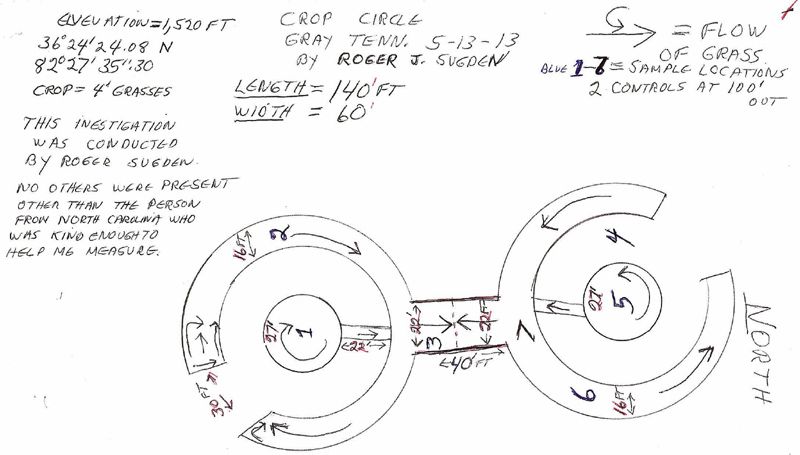 ELVEVATION = 1,520 FT
36° 24' 24.08 N
82° 27' 35".30
CROP = 4' GRASSES
THIS INESTIGATION
WAS CONDUCTED
BY ROGER SUGDEN.
NO OTHERS WERE PRESENT
OTHER THAN THE PERSON
FROM NORTH CAROLINA WHO
WAS KIND ENOUGH TO
HELP ME MEASURE.
CROP CIRCLE
GRAY TENN. 5-13-13
BY ROGER J. SUGDEN
LENGTH = 140' FT
WIDTH = 60'
= FLOW
OF GRASS
BLUE 1-7 = SAMPLE LOCATIONS
2 CONTROLS AT 100'
OUT
2
16 FT
1
27'
22'
30 FT
3
22'
22 FT
40' FT
4
5
27'
7
6
16 FT
NORTH